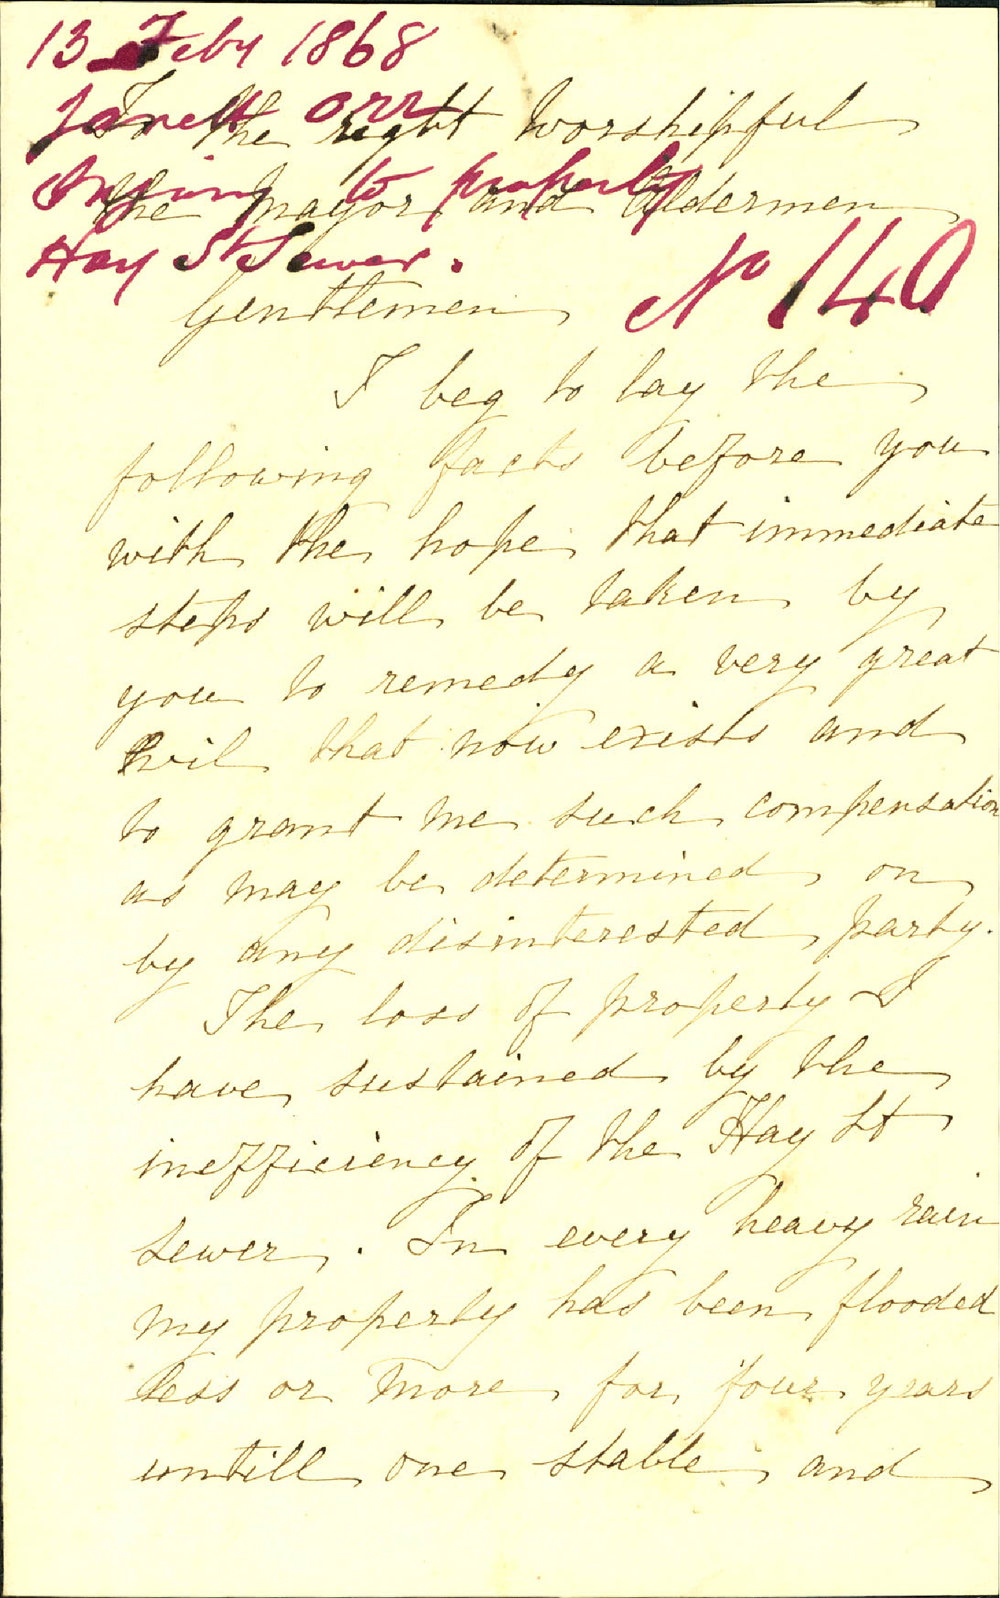 13 Feby 1868
Janett Orr
Injury to property
Hay St Sewer.
No 140
To the right Worshipful
the Mayor and Aldermen
Gentlemen
I beg to lay the
following facts before you
with the hope that immediate
steps will be taken by
you to remedy a very great
Evil that now exists and
to grant me such compensation
as may be determined on
by any disinterested party.
The loss of property I
have sustained by the
inefficiency of the Hay St
sewer. In every heavy rain
my property has been flooded
less or more for four years
untill one stable and